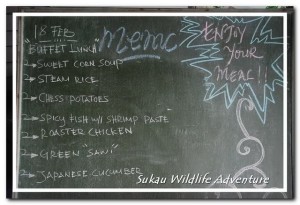 18 FEB
"BUFFET LUNCH"
menu
ENJOY
YOUR
MEAL!!
→ SWEET CORN SOUP
→ STEAM RICE
→ CHESS POTATOES
→ SPICY FISH W/ SHRIMP PASTE
→ ROASTER CHICKEN
→ GREEN "SAWI"
→ JAPANESE CUCUMBER
Sukau Wildlife Adventure